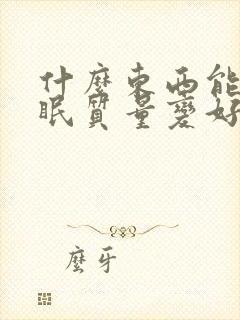 什麼東西能
眠質量變好
麼牙